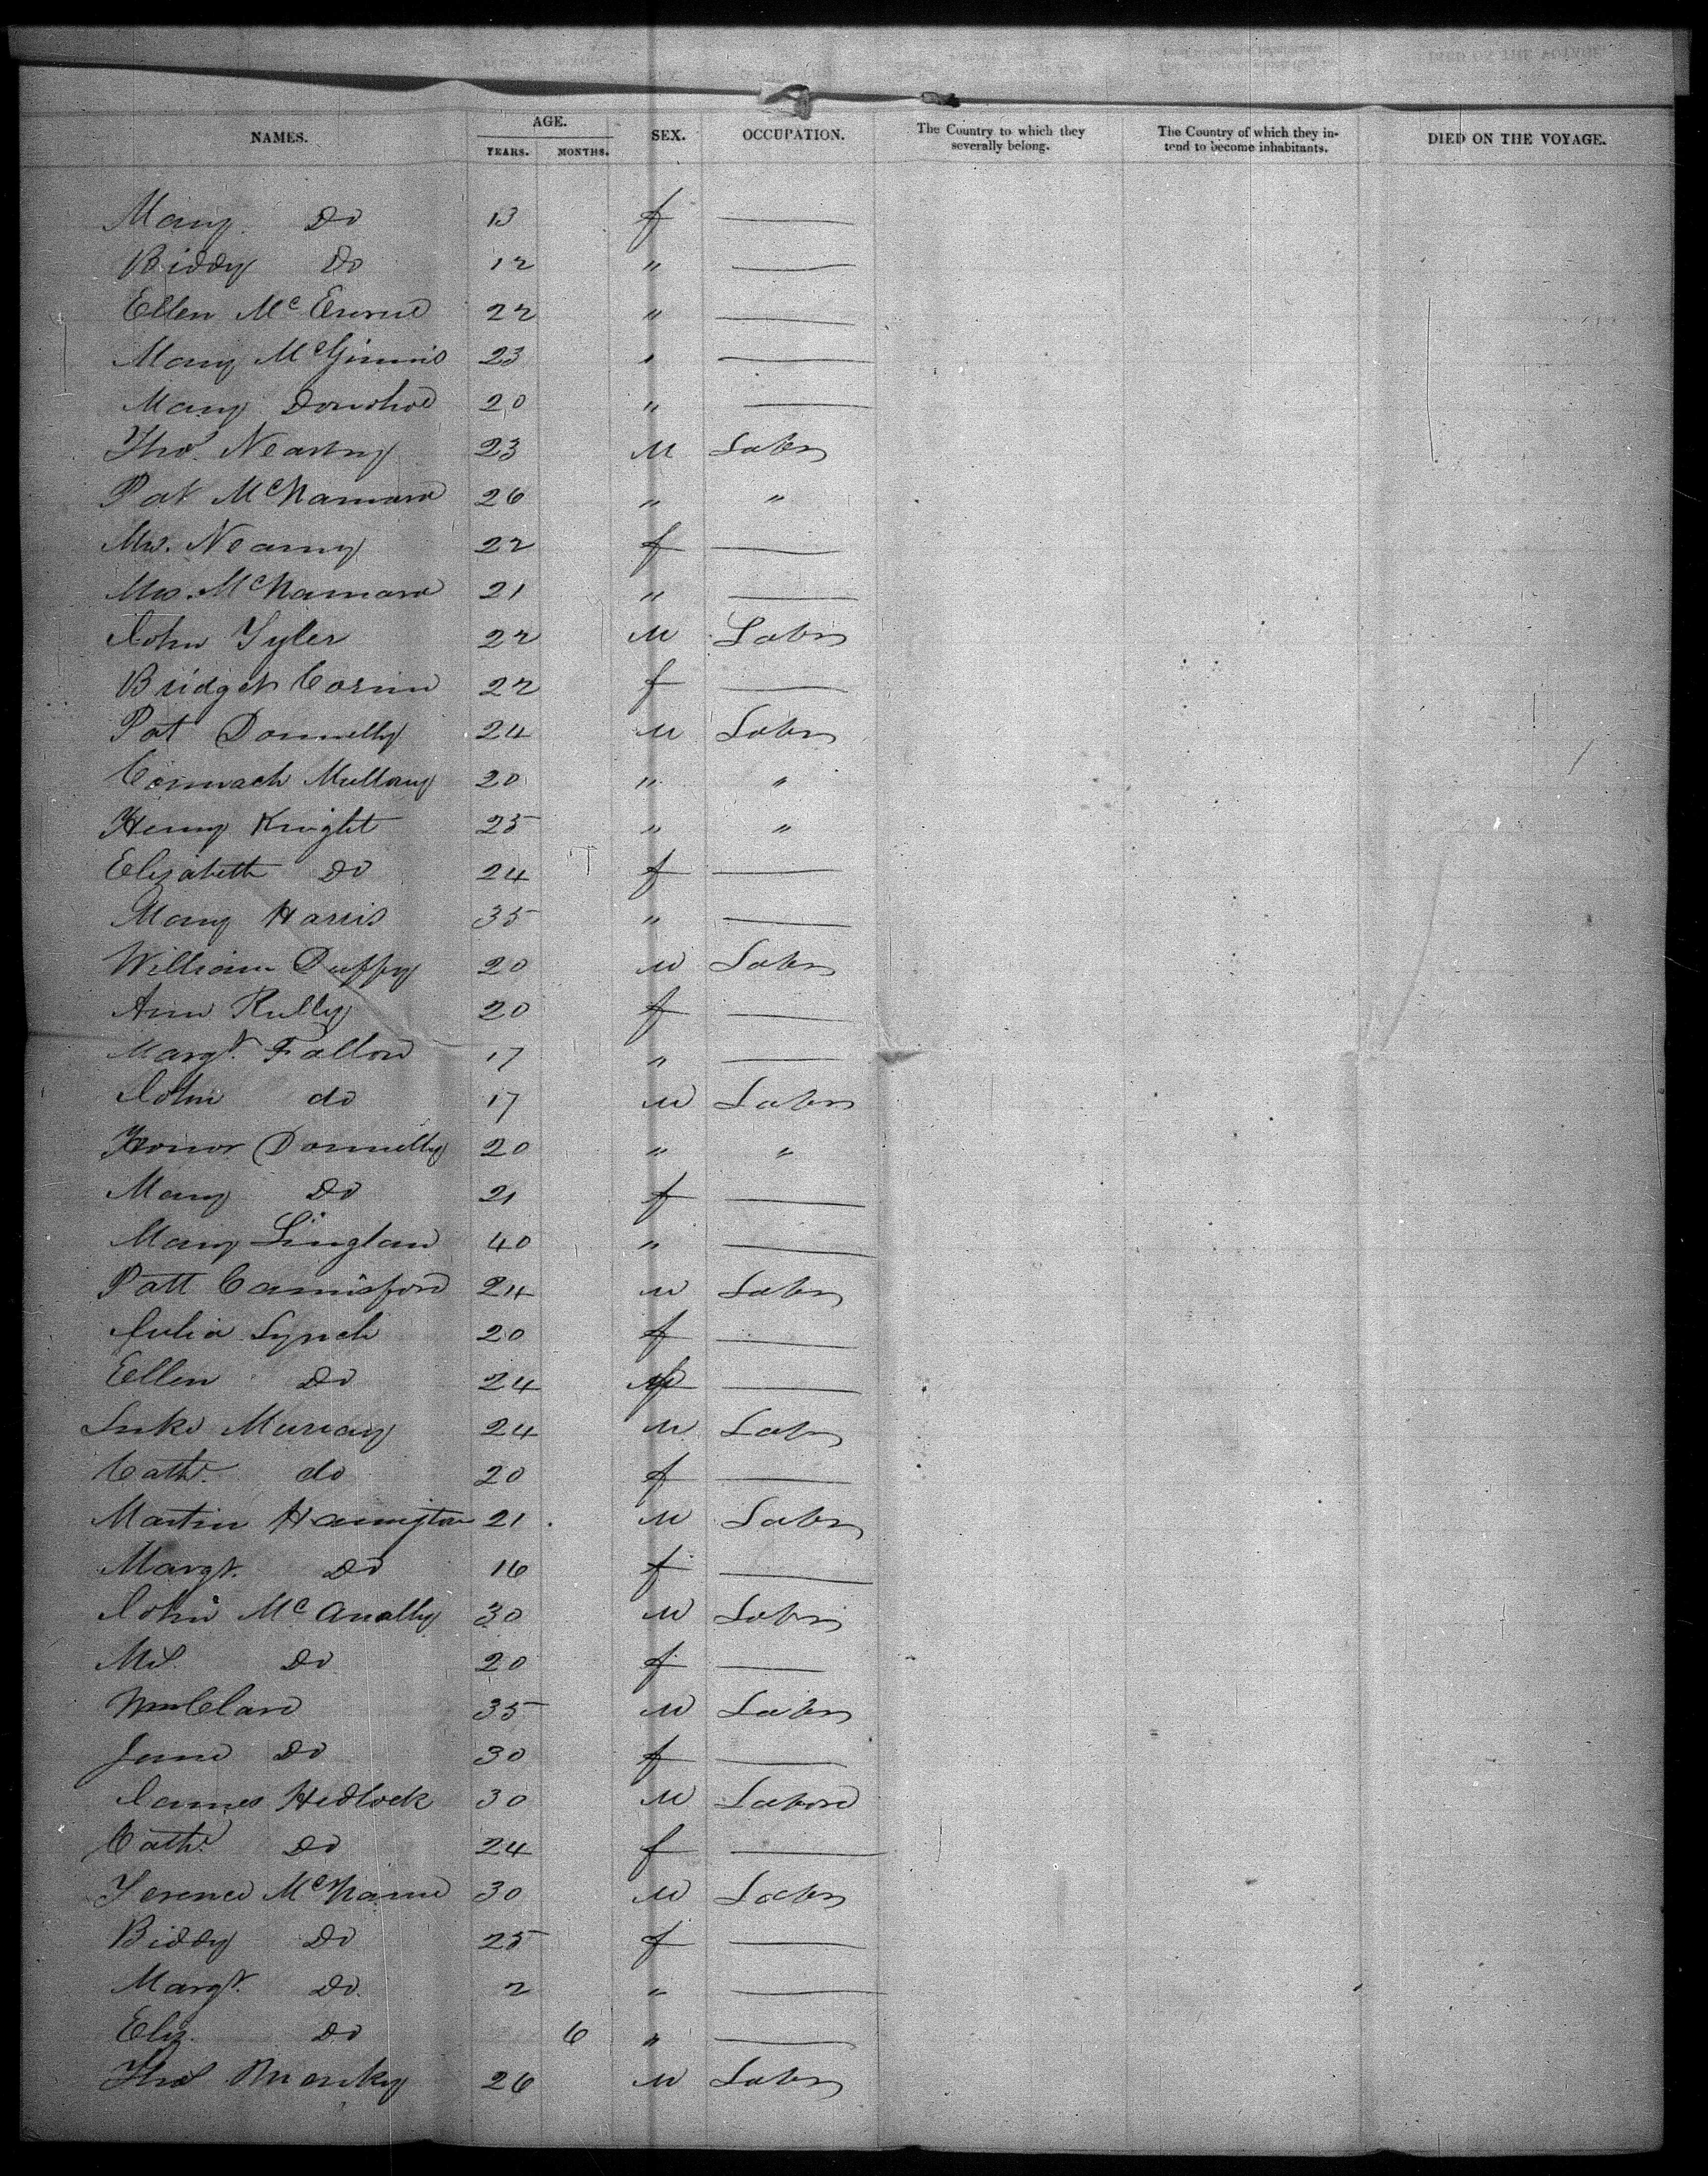 NAMES. AGE. YEARS. MONTHS. SEX. OCCUPATION. The Country to which they severally belong. The Country of which they intend to become inhabitants. DIED ON THE VOYAGE.
Mary Do 13 f
Biddy Do 12 "
Ellen Mc 22 "
Mary McGinnis 23 "
Mary Donohoe 20 "
Thos Nearny 23 M Labr
Pat McNamara 26 " "
Mrs. Nearny 22 f
Mrs. McNamara 21 "
John Tyler 22 M Labr
Bridget 22 f
Pat Donnelly 24 M Labr
Cormach Mullany 20 " "
Henry Knight 25 " "
Elizabeth Do 24 f
Mary Harris 35 "
William Duffy 20 M Labr
Ann 20 f
Margt. Fallon 17 "
John do 17 M Labr
Honor Donnelly 20 " "
Mary Do 21 f
Mary 40 "
Patt 24 M Labr
Julia Lynch 20 f
Ellen Do 24 f
Luke Murray 24 M Labr
Cathe. do 20 f
Martin Harrington 21 M Labr
Margt. Do 16 f
John McAnally 30 M Labr
Mrs. Do 20 f
Wm Clare 35 M Labr
Jane Do 30 f
James Hedlock 30 M Labore
Cathe Do 24 f
Terence McName 30 M Labr
Biddy Do 25 f
Margt. Do. 2 "
Eliz. Do 6 "
Thos 26 M Labr